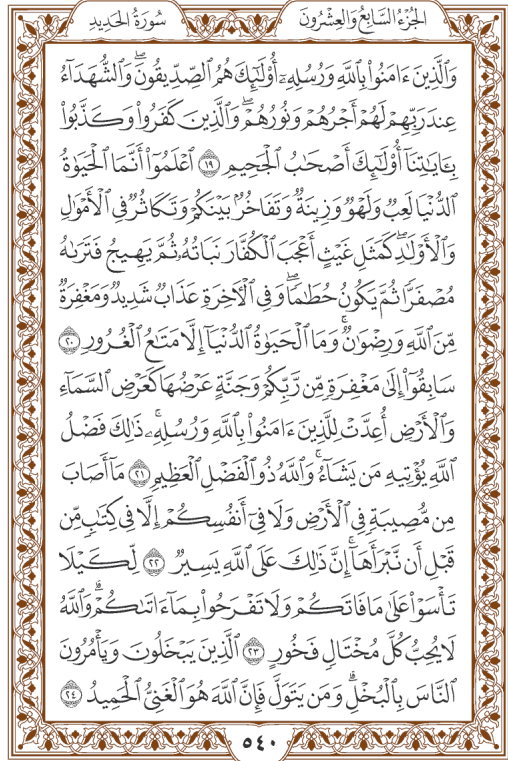 الجُزْءُ السَّابِعُ وَالعِشْرُونَ
سُورَةُ الحَدِيدِ
وَالَّذِينَ ءَامَنُوا۟ بِٱللَّهِ وَرُسُلِهِۦٓ أُو۟لَـٰٓئِكَ هُمُ ٱلصِّدِّيقُونَ ۖ وَٱلشُّهَدَآءُ
عِندَ رَبِّهِمْ لَهُمْ أَجْرُهُمْ وَنُورُهُمْ ۖ وَٱلَّذِينَ كَفَرُوا۟ وَكَذَّبُوا۟
بِـَٔايَـٰتِنَآ أُو۟لَـٰٓئِكَ أَصْحَـٰبُ ٱلْجَحِيمِ ١٩ ٱعْلَمُوٓا۟ أَنَّمَا ٱلْحَيَوٰةُ
ٱلدُّنْيَا لَعِبٌ وَلَهْوٌ وَزِينَةٌ وَتَفَاخُرٌۢ بَيْنَكُمْ وَتَكَاثُرٌ فِى ٱلْأَمْوَٰلِ
وَٱلْأَوْلَـٰدِ ۖ كَمَثَلِ غَيْثٍ أَعْجَبَ ٱلْكُفَّارَ نَبَاتُهُۥ ثُمَّ يَهِيجُ فَتَرَىٰهُ
مُصْفَرًّا ثُمَّ يَكُونُ حُطَـٰمًا ۖ وَفِى ٱلْـَٔاخِرَةِ عَذَابٌ شَدِيدٌ وَمَغْفِرَةٌ
مِّنَ ٱللَّهِ وَرِضْوَٰنٌ ۚ وَمَا ٱلْحَيَوٰةُ ٱلدُّنْيَآ إِلَّا مَتَـٰعُ ٱلْغُرُورِ ٢٠
سَابِقُوٓا۟ إِلَىٰ مَغْفِرَةٍ مِّن رَّبِّكُمْ وَجَنَّةٍ عَرْضُهَا كَعَرْضِ ٱلسَّمَآءِ
وَٱلْأَرْضِ أُعِدَّتْ لِلَّذِينَ ءَامَنُوا۟ بِٱللَّهِ وَرُسُلِهِۦ ۚ ذَٰلِكَ فَضْلُ
ٱللَّهِ يُؤْتِيهِ مَن يَشَآءُ ۚ وَٱللَّهُ ذُو ٱلْفَضْلِ ٱلْعَظِيمِ ٢١ مَآ أَصَابَ
مِن مُّصِيبَةٍ فِى ٱلْأَرْضِ وَلَا فِىٓ أَنفُسِكُمْ إِلَّا فِى كِتَـٰبٍ مِّن
قَبْلِ أَن نَّبْرَأَهَآ ۚ إِنَّ ذَٰلِكَ عَلَى ٱللَّهِ يَسِيرٌ ٢٢ لِّكَيْلَا
تَأْسَوْا۟ عَلَىٰ مَا فَاتَكُمْ وَلَا تَفْرَحُوا۟ بِمَآ ءَاتَىٰكُمْ ۗ وَٱللَّهُ
لَا يُحِبُّ كُلَّ مُخْتَالٍ فَخُورٍ ٢٣ ٱلَّذِينَ يَبْخَلُونَ وَيَأْمُرُونَ
ٱلنَّاسَ بِٱلْبُخْلِ ۗ وَمَن يَتَوَلَّ فَإِنَّ ٱللَّهَ هُوَ ٱلْغَنِىُّ ٱلْحَمِيدُ ٢٤
٥٤٠